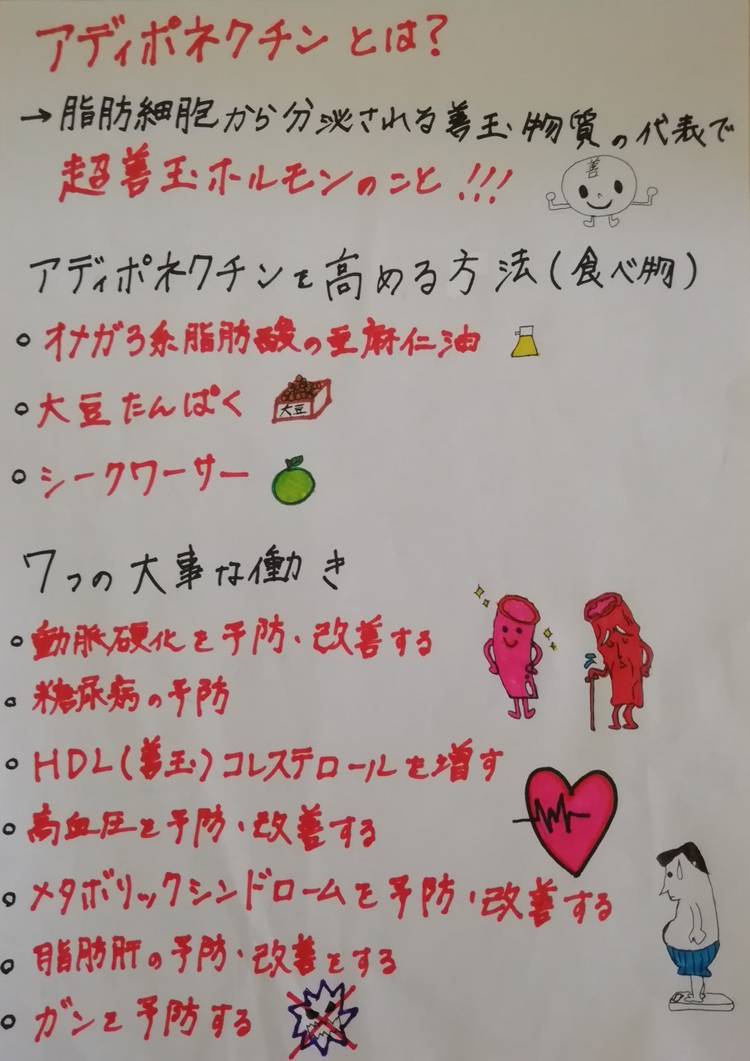 アディポネクチンとは?
→脂肪細胞から分泌される善玉物質の代表で
超善玉ホルモンのこと!!!
善
アディポネクチンを高める方法(食べ物)
○オメガ3系脂肪酸の亜麻仁油
○大豆たんぱく
大豆
○シークワーサー
7つの大事な働き
○動脈硬化を予防・改善する
○糖尿病の予防
○HDL(善玉)コレステロールを増す
○高血圧を予防・改善する
○メタボリックシンドロームを予防・改善する
○脂肪肝の予防・改善とする
○ガンを予防する